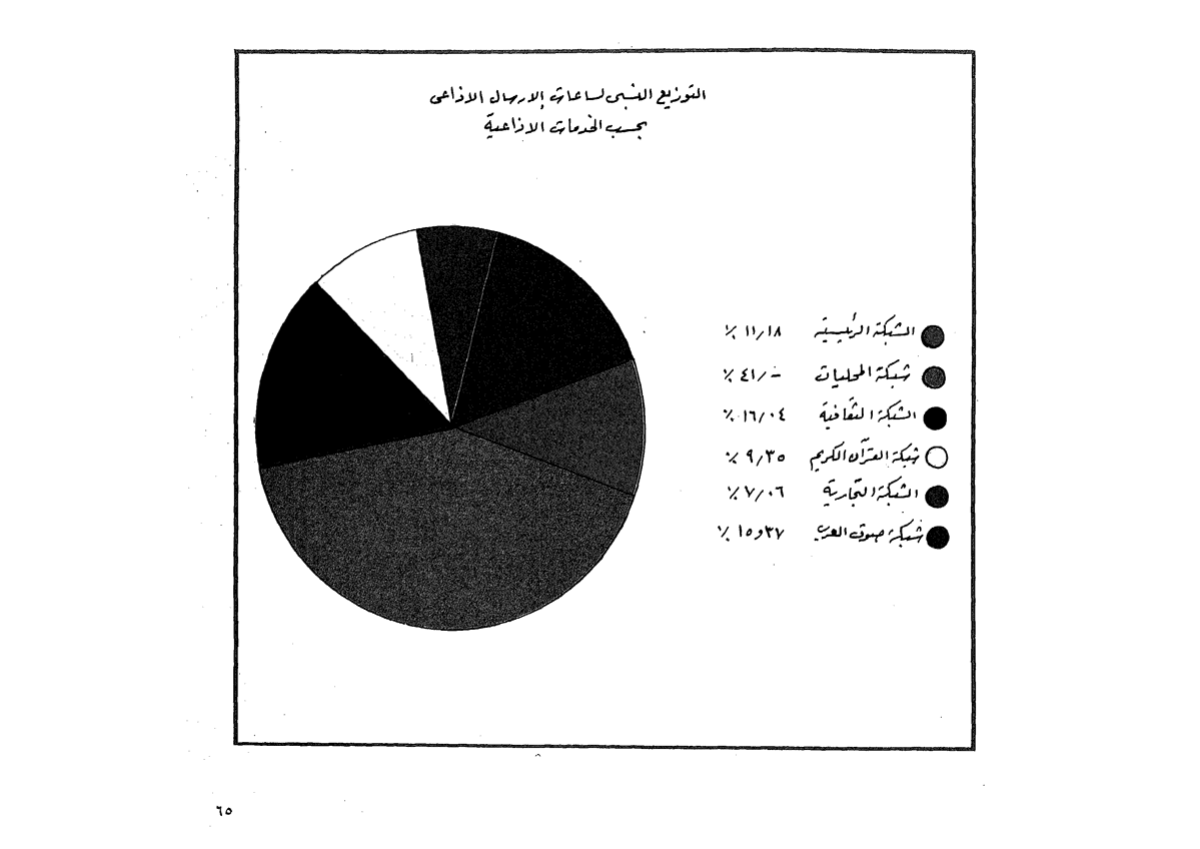 التوزيع النسبى لساعات الارسال الاذاعى
بحسب الخدمات الاذاعية
الشبكة الرئيسية ١١٫١٨ ٪
شبكة المحليات ٤١٫٠٠ ٪
الشبكة الثقافية ١٦٫٠٤ ٪
شبكة القرآن الكريم ٩٫٣٥ ٪
الشبكة التجارية ٧٫٠٦ ٪
شبكة صوت العرب ١٥٫٣٧ ٪
٦٥